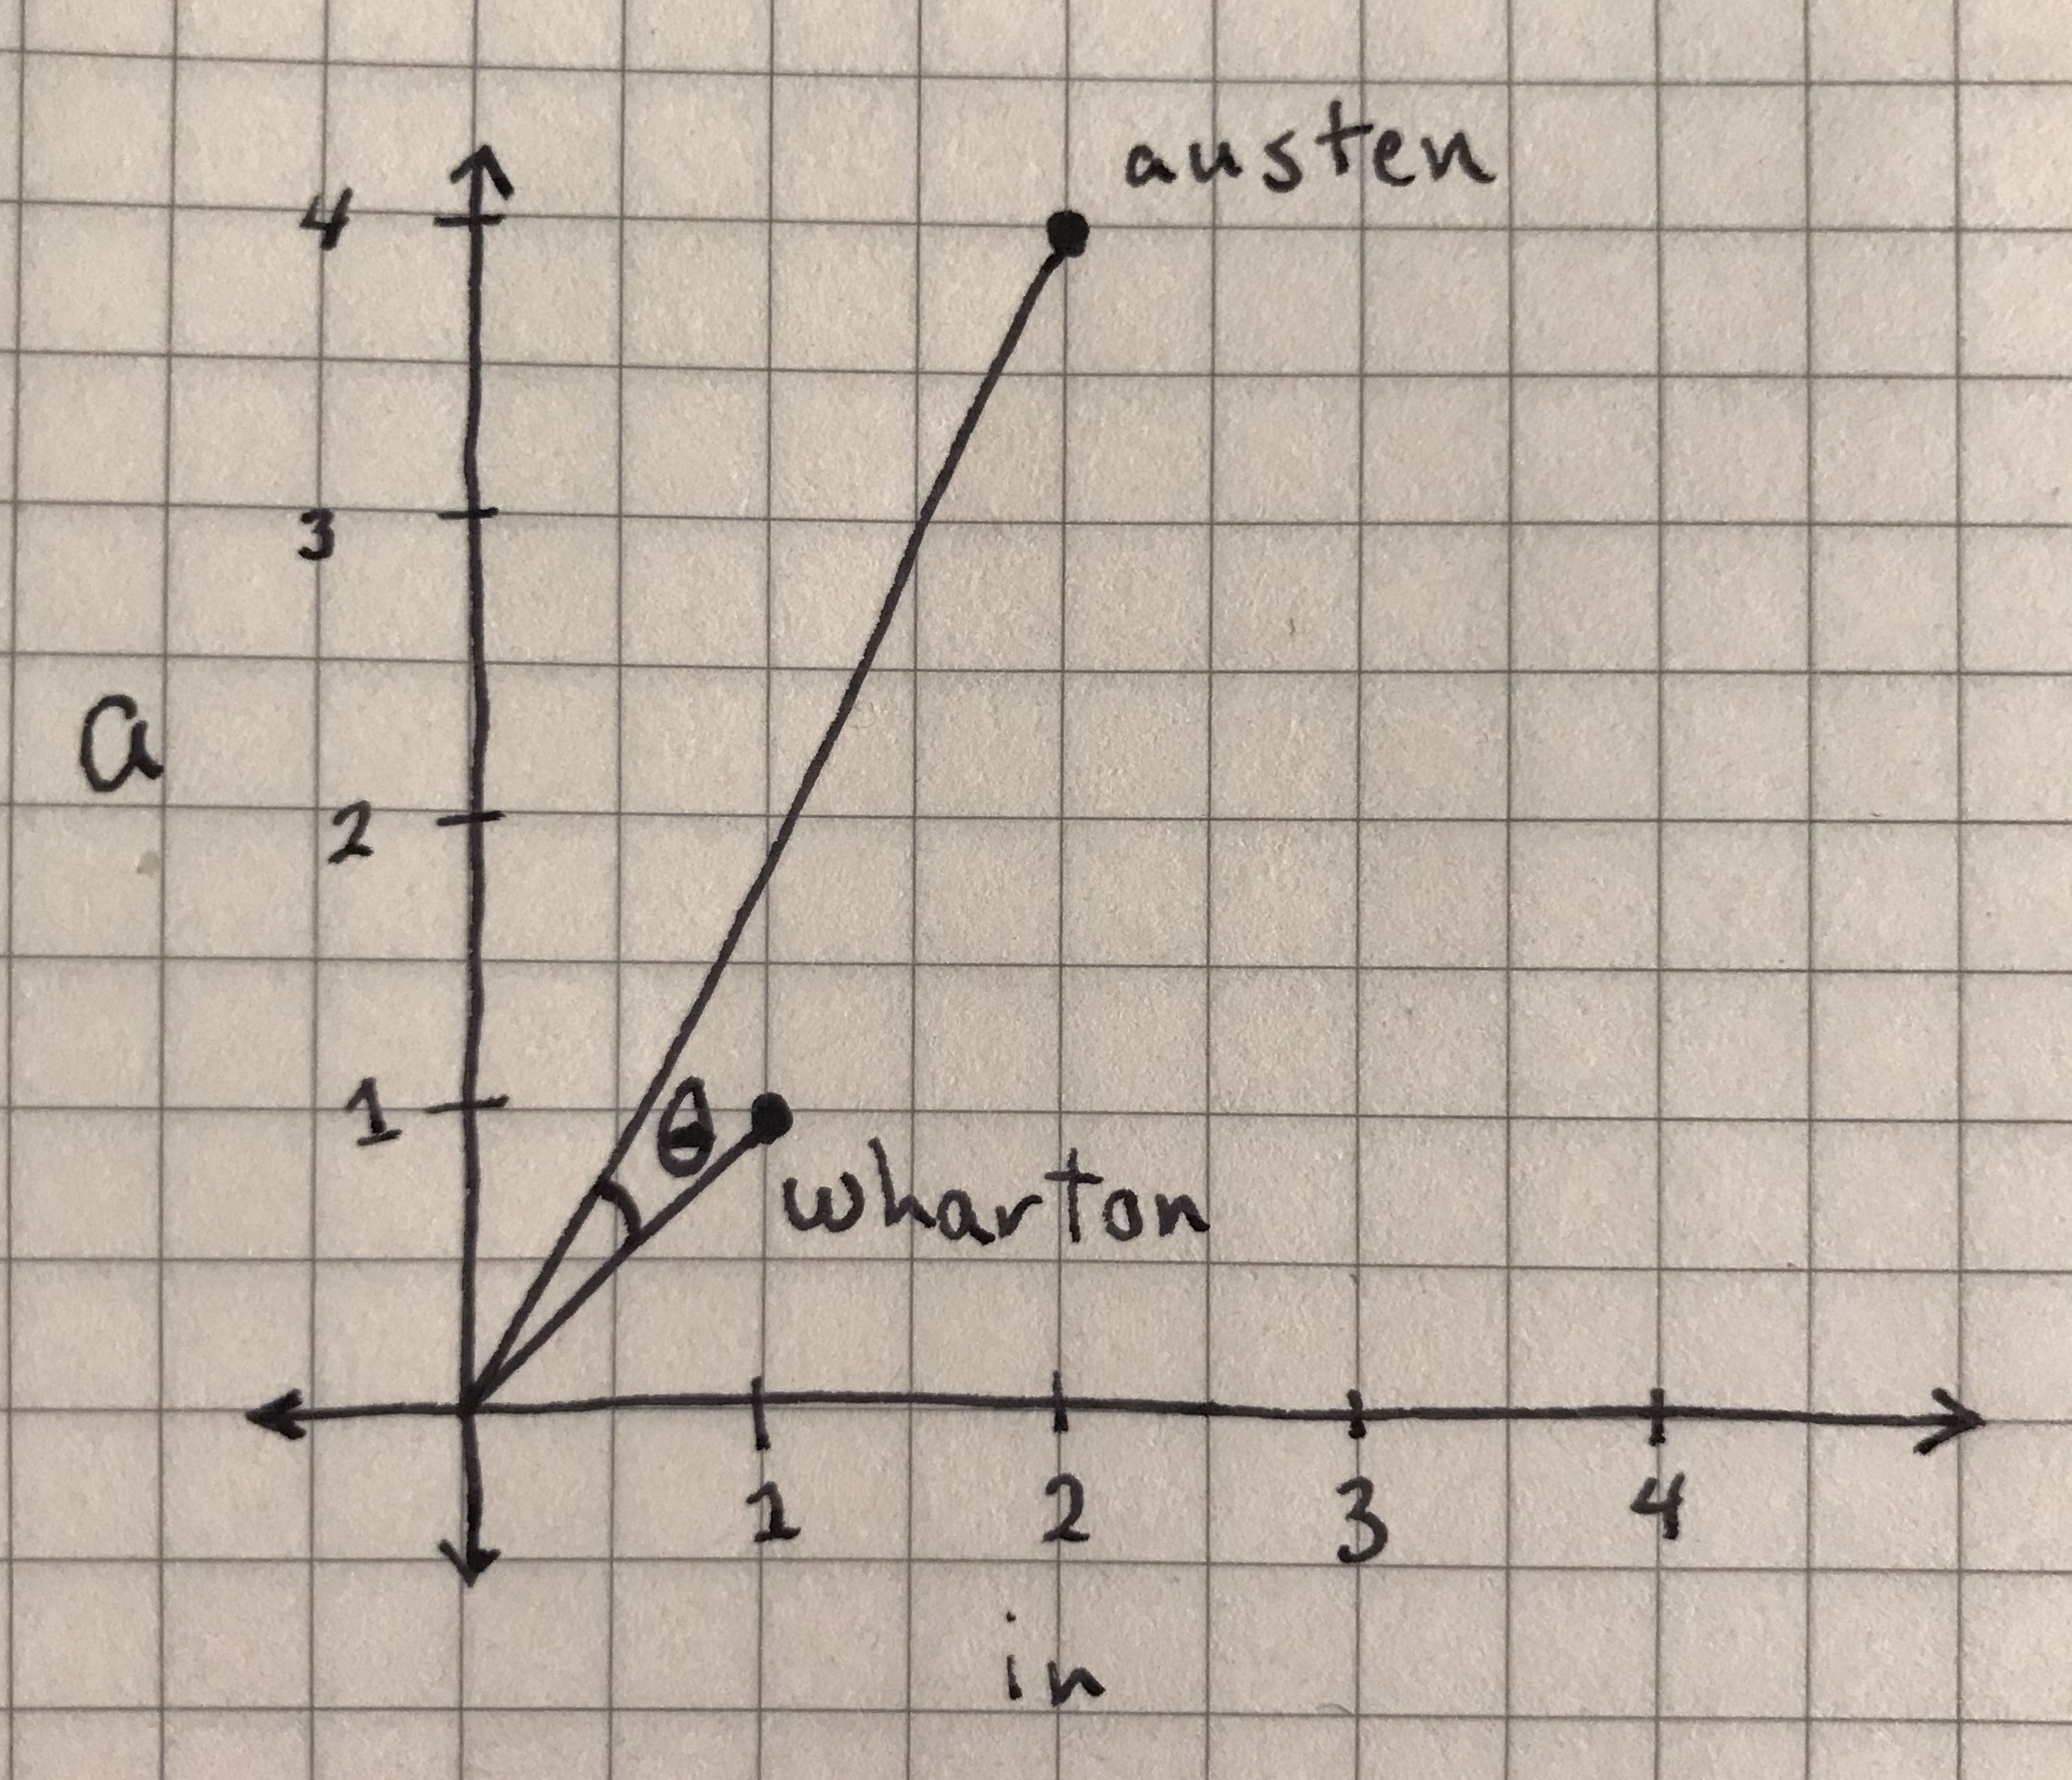 austen
4
3
a
2
1
θ
wharton
1 2 3 4
in